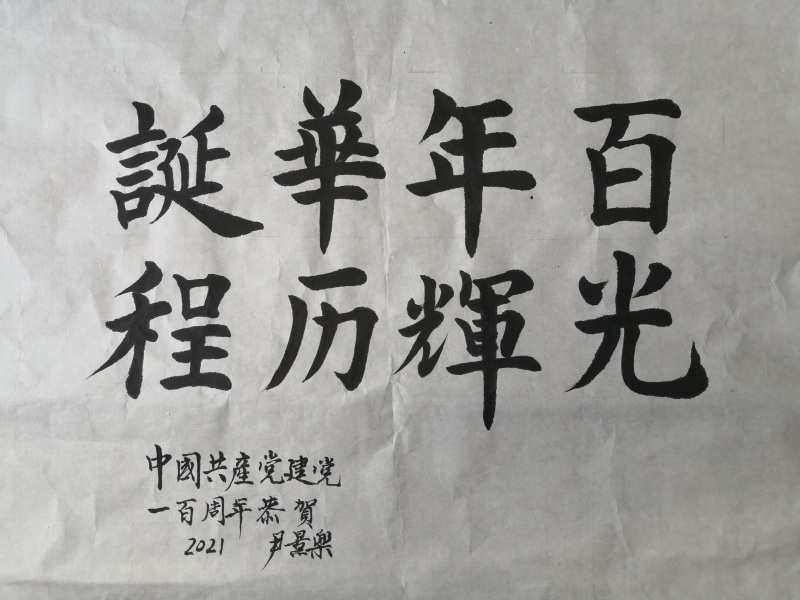 百年華誕
光輝历程
中國共產党建党
一百周年恭賀
2021 尹景樂